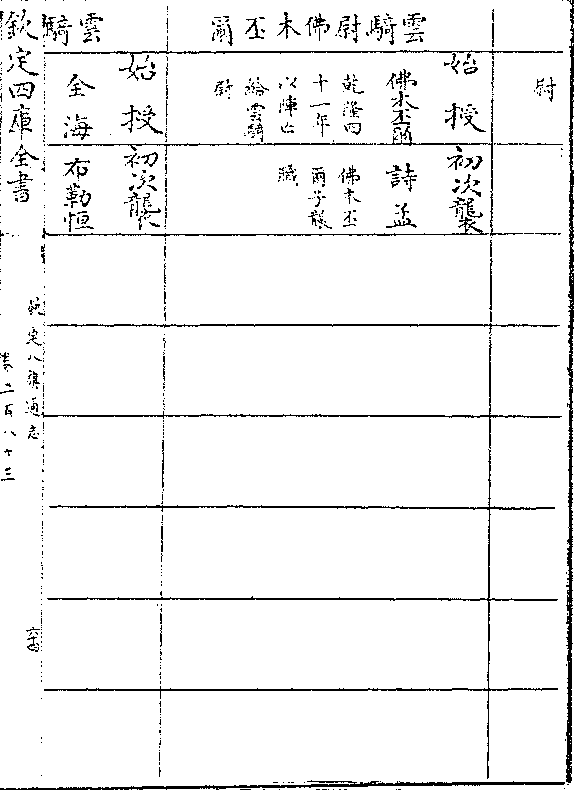 尉
雲騎尉佛木丕爾
始授
初次襲
佛木丕爾
詩孟
乾隆四
十一年
以陣亡
給雲騎
尉
佛木丕
爾子襲
職
雲騎
始授
初次襲
全海
布勒恒
欽定四庫全書
欽定八旗通志
卷二百八十三